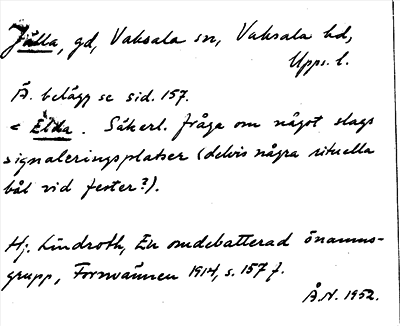 Jälla, gd, Vaksala sn, Vaksala hd,
Upps. l.
Ä. belägg se sid. 157.
< Elda. Säkerl. fråga om något slags
signaleringsplatser (delvis några rituella
bål vid fester?).
Hj. Lindroth, En omdebatterad önamns-
grupp, Fornvännen 1914, s. 157 f.
Å.N. 1952.